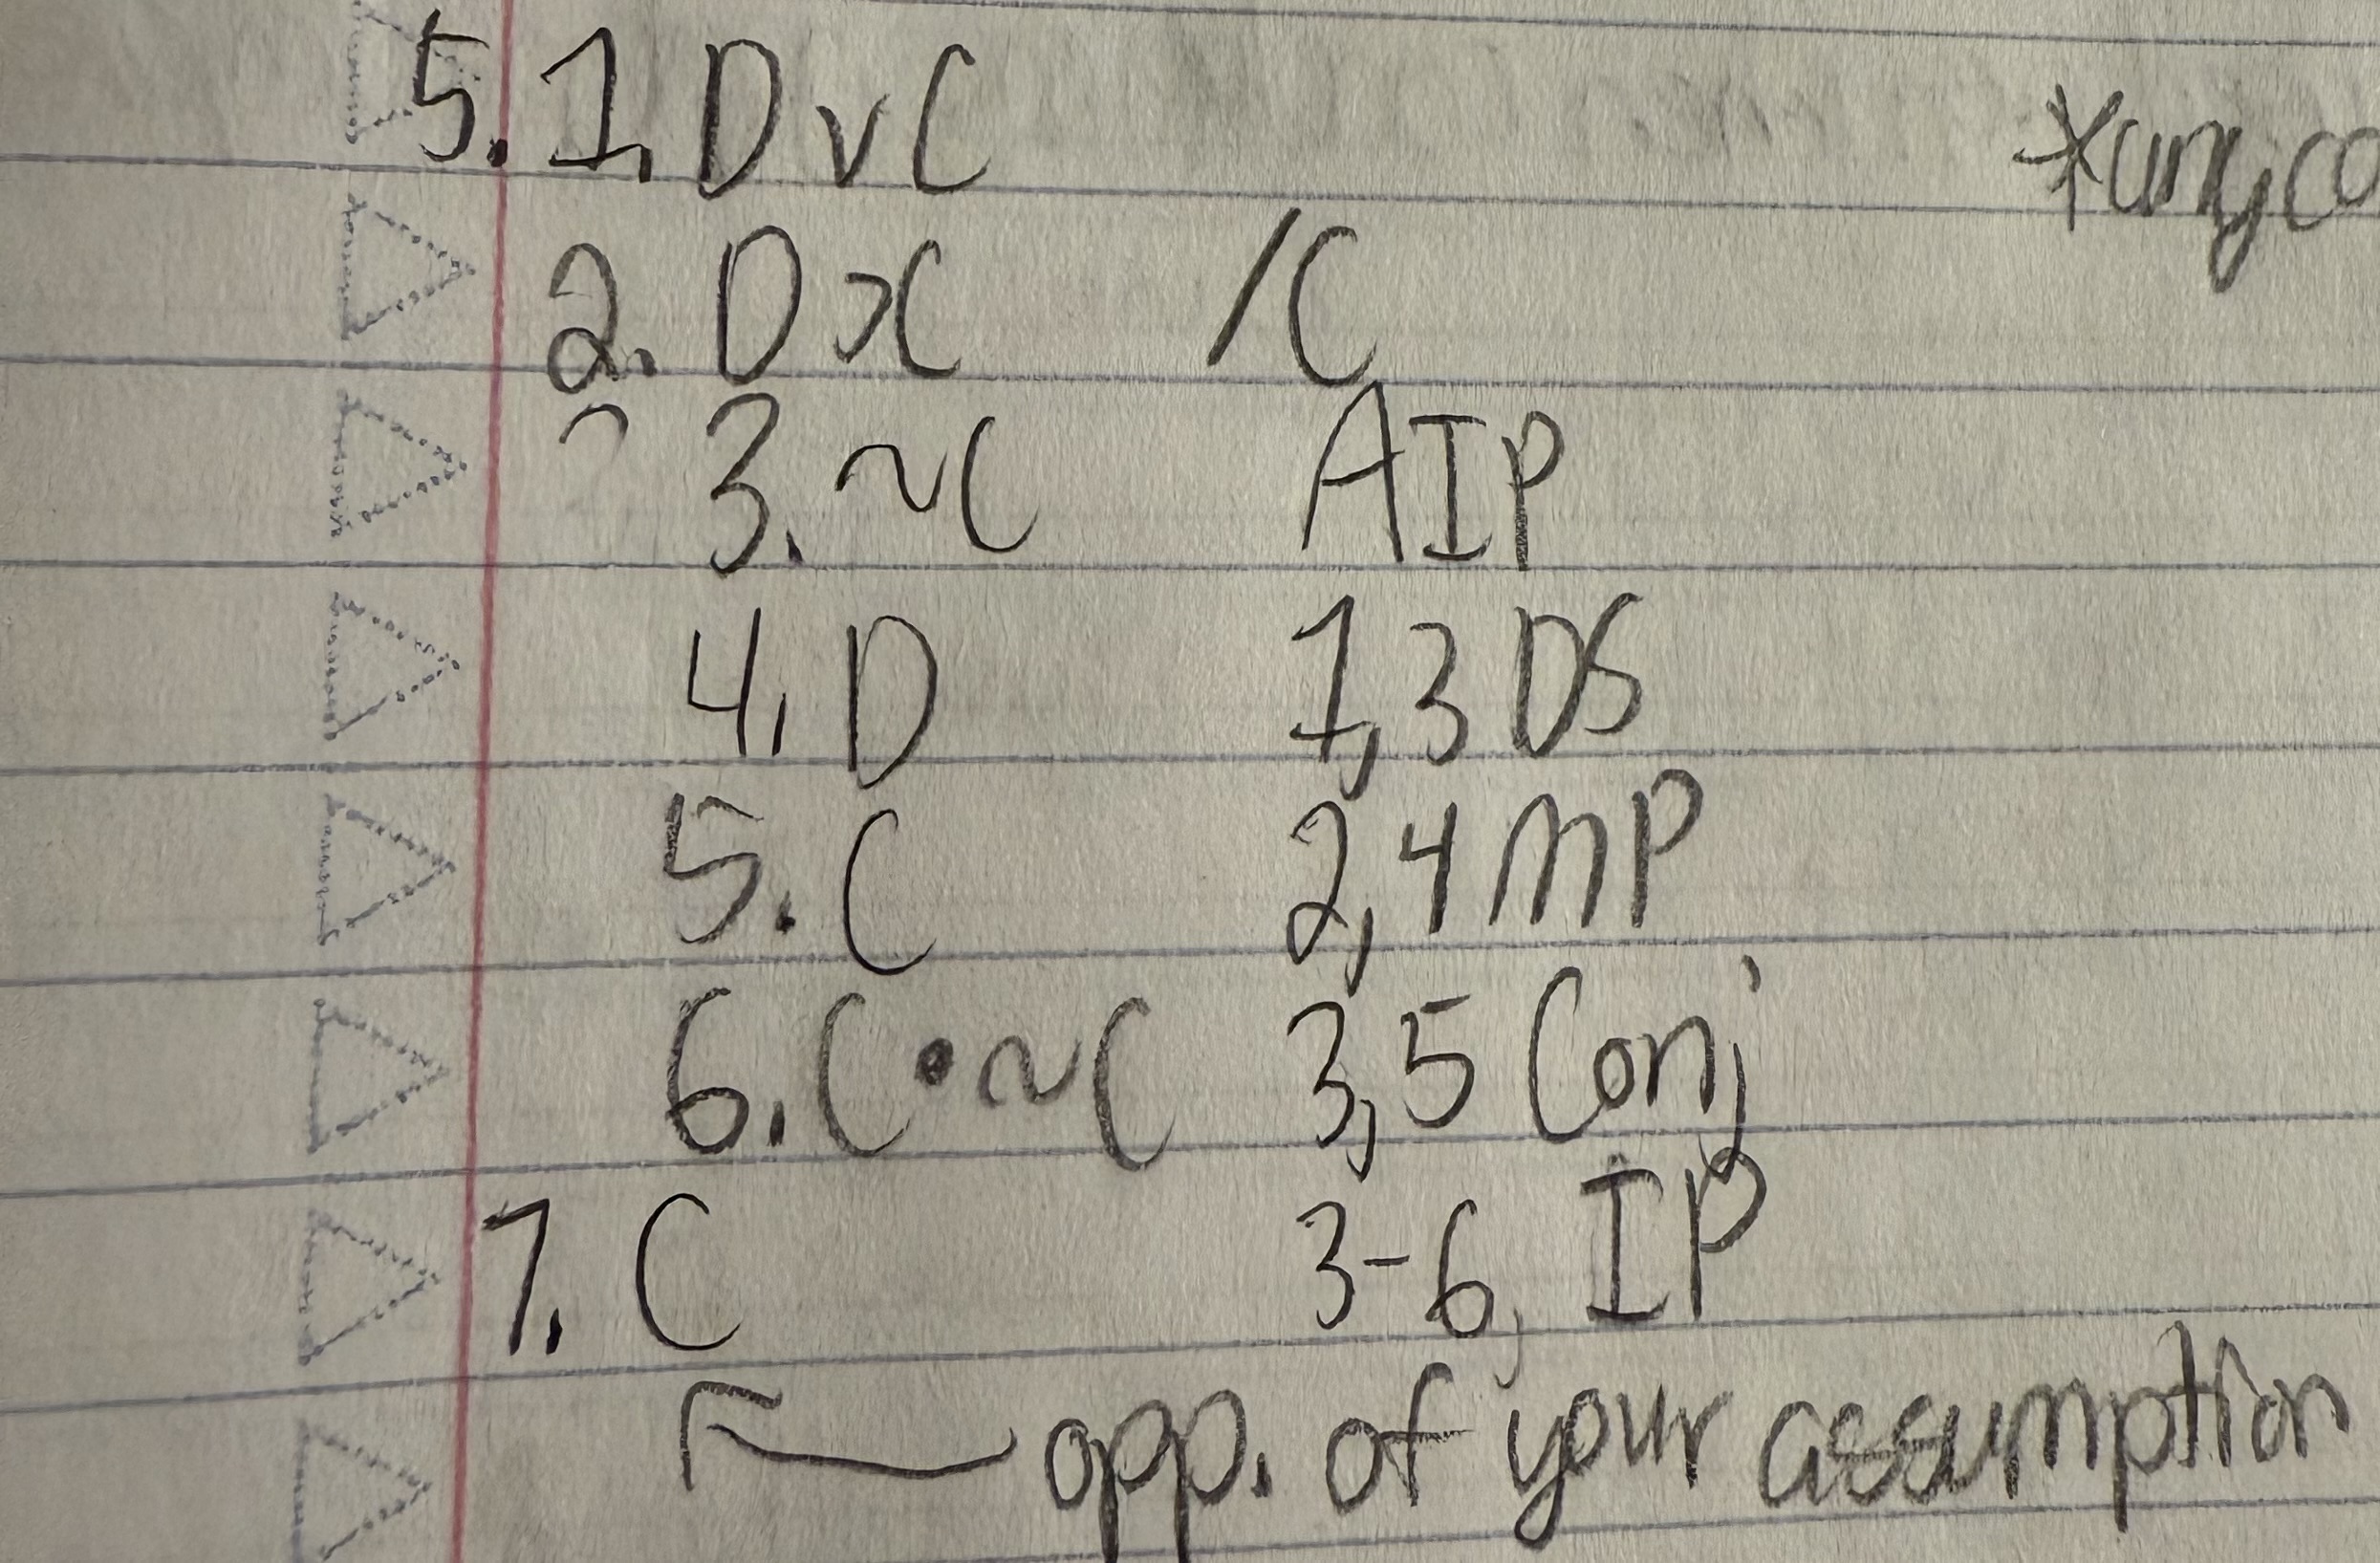 5. 1. D v C
*any co
2. D ⊃ C /C
3. ~C AIP
4. D 1,3 DS
5. C 2,4 MP
6. C • ~C 3,5 Conj
7. C 3-6, IP
opp. of your assumption